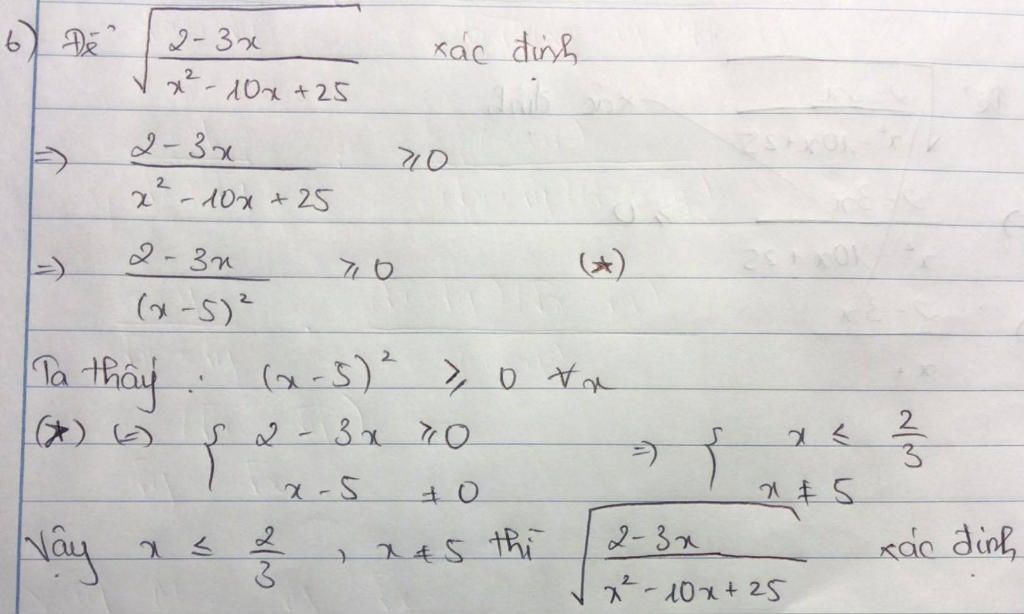 6) Để √((2 - 3x)/(x² - 10x + 25)) xác định
=> (2 - 3x)/(x² - 10x + 25) ⩾ 0
=> (2 - 3x)/(x - 5)² ⩾ 0 (*)
Ta thấy : (x - 5)² ⩾ 0 ∀x
(*) (=) { 2 - 3x ⩾ 0 => { x ≤ 2/3
x - 5 ≠ 0 x ≠ 5
Vậy x ≤ 2/3 , x ≠ 5 thì √((2 - 3x)/(x² - 10x + 25)) xác định